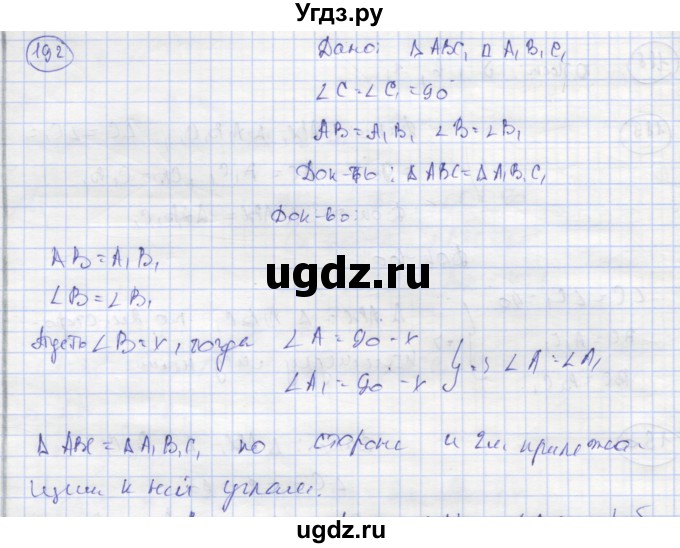 Угдз.ру
192
Дано: Δ ABC, Δ A₁B₁C₁
∠C = ∠C₁ = 90°
AB = A₁B₁ ∠B = ∠B₁
Док-ть: Δ ABC = Δ A₁B₁C₁
Док-во:
AB = A₁B₁
∠B = ∠B₁
ugdz.ru
Пусть ∠B = x, тогда ∠A = 90° - x
∠A₁ = 90° - x } => ∠A = ∠A₁
Δ ABC = Δ A₁B₁C₁ по стороне и 2м прилежа-
щим к ней углам.
ugdz.ru